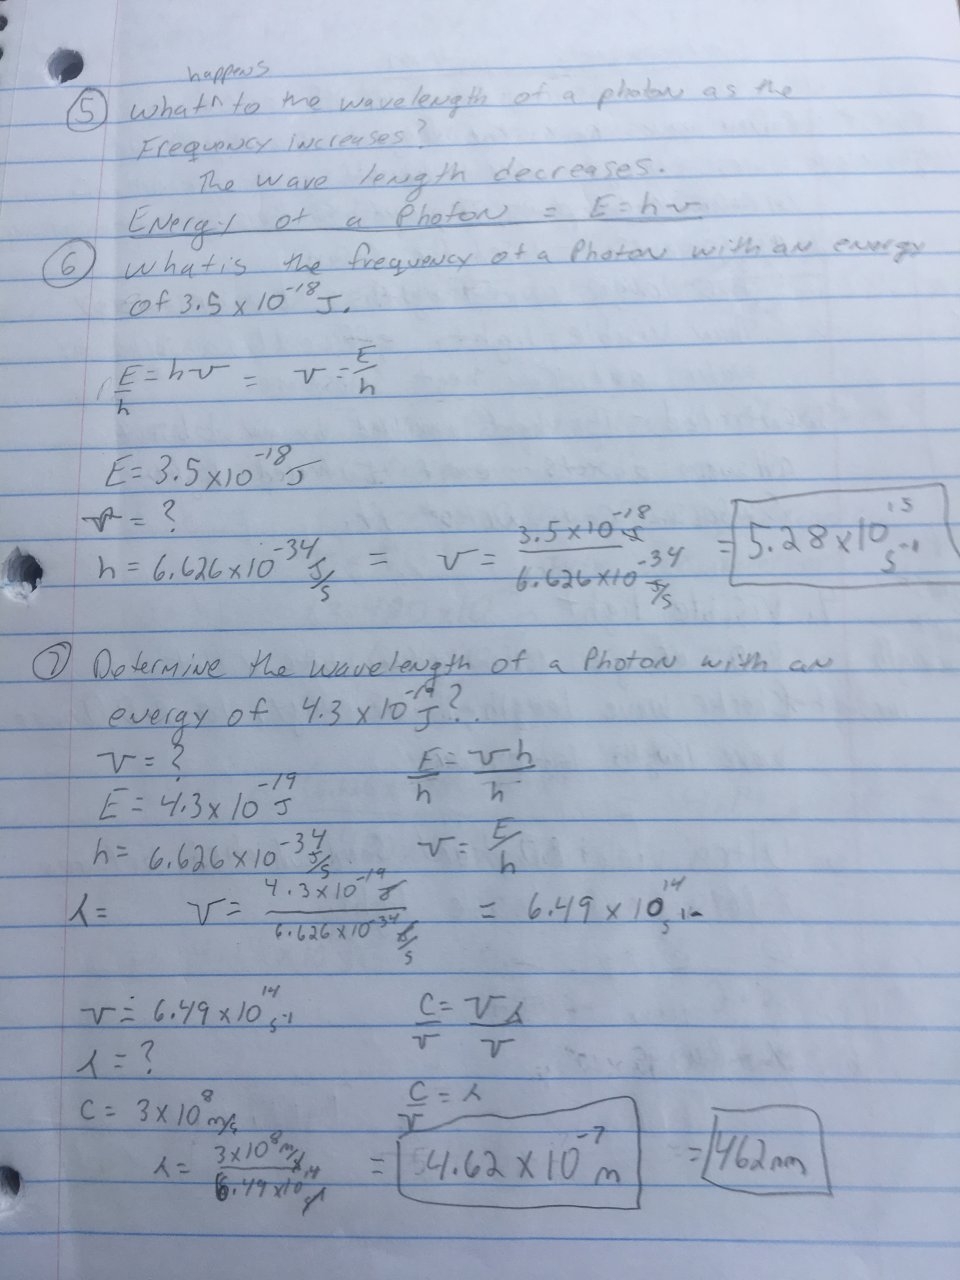 happens
⑤ What ^ to the wavelength of a photon as the
Frequency increases?
The wave length decreases.
Energy of a Photon = E=hν
⑥ What is the frequency of a Photon with an energy
of 3.5 x 10^-18 J.
E/h = hν = ν = E/h
E = 3.5x10^-18 J
ν = ?
h = 6.626x10^-34 J/s = ν = 3.5x10^-18 J / 6.626x10^-34 J/s = 5.28x10^15 s^-1
⑦ Determine the wavelength of a Photon with an
energy of 4.3 x 10^-19 J?
ν = ? E/h = νh/h
E = 4.3x10^-19 J
h = 6.626x10^-34 J/s ν = E/h
λ= ν = 4.3x10^-19 J / 6.626x10^-34 J/s = 6.49 x 10^14 s^-1
ν = 6.49x10^14 s^-1 C/ν = νλ/ν
λ = ?
C = 3x10^8 m/s C/ν = λ
λ = 3x10^8 m/s / 6.49x10^14 s^-1 = 4.62 x 10^-7 m = 462nm